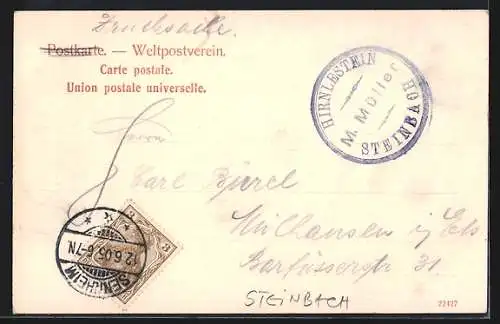 Drucksache
Postkarte. — Weltpostverein.
Carte postale.
Union postale universelle.
HIRNLESTEIN HOF
M. Möller
STEINBACH
Herrn
Carl
Mülhausen i/ Els
Barfüsserstr 31.
3 3
SENNHEIM
12.6.05. 6-7N.
STEINBACH
22427